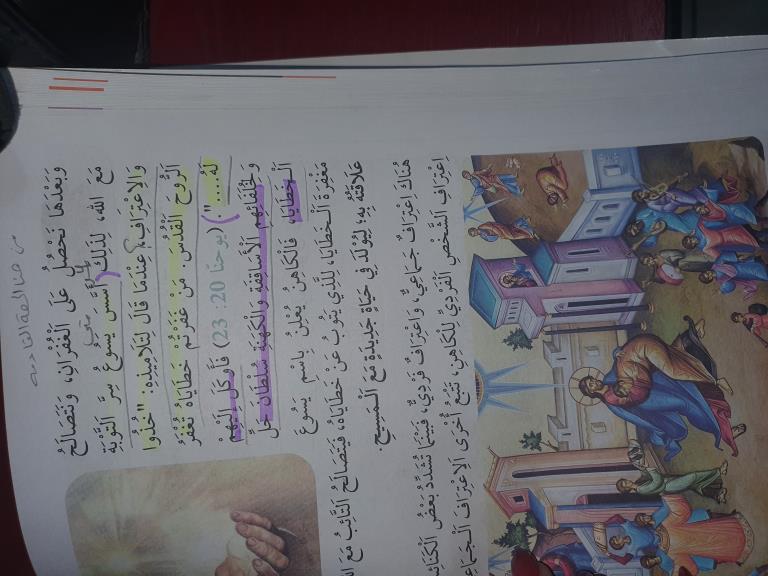 من هنا الحصة القادمة
وَبَعْدَهَا نَحْصُلُ عَلَى الْغُفْرَانِ، وَنَتَصَالَحُ
مَعَ اللهِ، لِذَلِكَ أَسَّسَ يَسُوعُ سِرَّ التَّوْبَةِ
وَالِاعْتِرَافِ، عِنْدَمَا قَالَ لِتَلَامِيذِهِ: "خُذُوا
الرُّوحَ الْقُدُسَ. مَنْ غَفَرْتُمْ خَطَايَاهُ تُغْفَرُ
لَهُ....". (يوحنا 20: 23) فَأَوْكَلَ إِلَيْهِمْ
وَلِخُلَفَائِهِمِ الْأَسَاقِفَةِ وَالْكَهَنَةِ سُلْطَانَ حَلِّ
الْخَطَايَا، فَالْكَاهِنُ يُعْلِنُ بِاسْمِ يَسُوعَ
مَغْفِرَةَ الْخَطَايَا، لِلَّذِي يَتُوبُ عَنْ خَطَايَاهُ، فَيَتَصَالَحُ التَّائِبُ مَعَ
عَلَاقَتُهُ بِهِ؛ لِيُولَدَ فِي حَيَاةٍ جَدِيدَةٍ مَعَ الْمَسِيحِ.
هُنَاكَ اعْتِرَافٌ جَمَاعِيٌّ، وَاعْتِرَافٌ فَرْدِيٌّ، فَبَيْنَمَا تُشَدِّدُ بَعْضُ
اعْتِرَافِ الشَّخْصِ الْفَرْدِيِّ لِلْكَاهِنِ، تَتَّبِعُ أُخْرَى الِاعْتِرَافَ